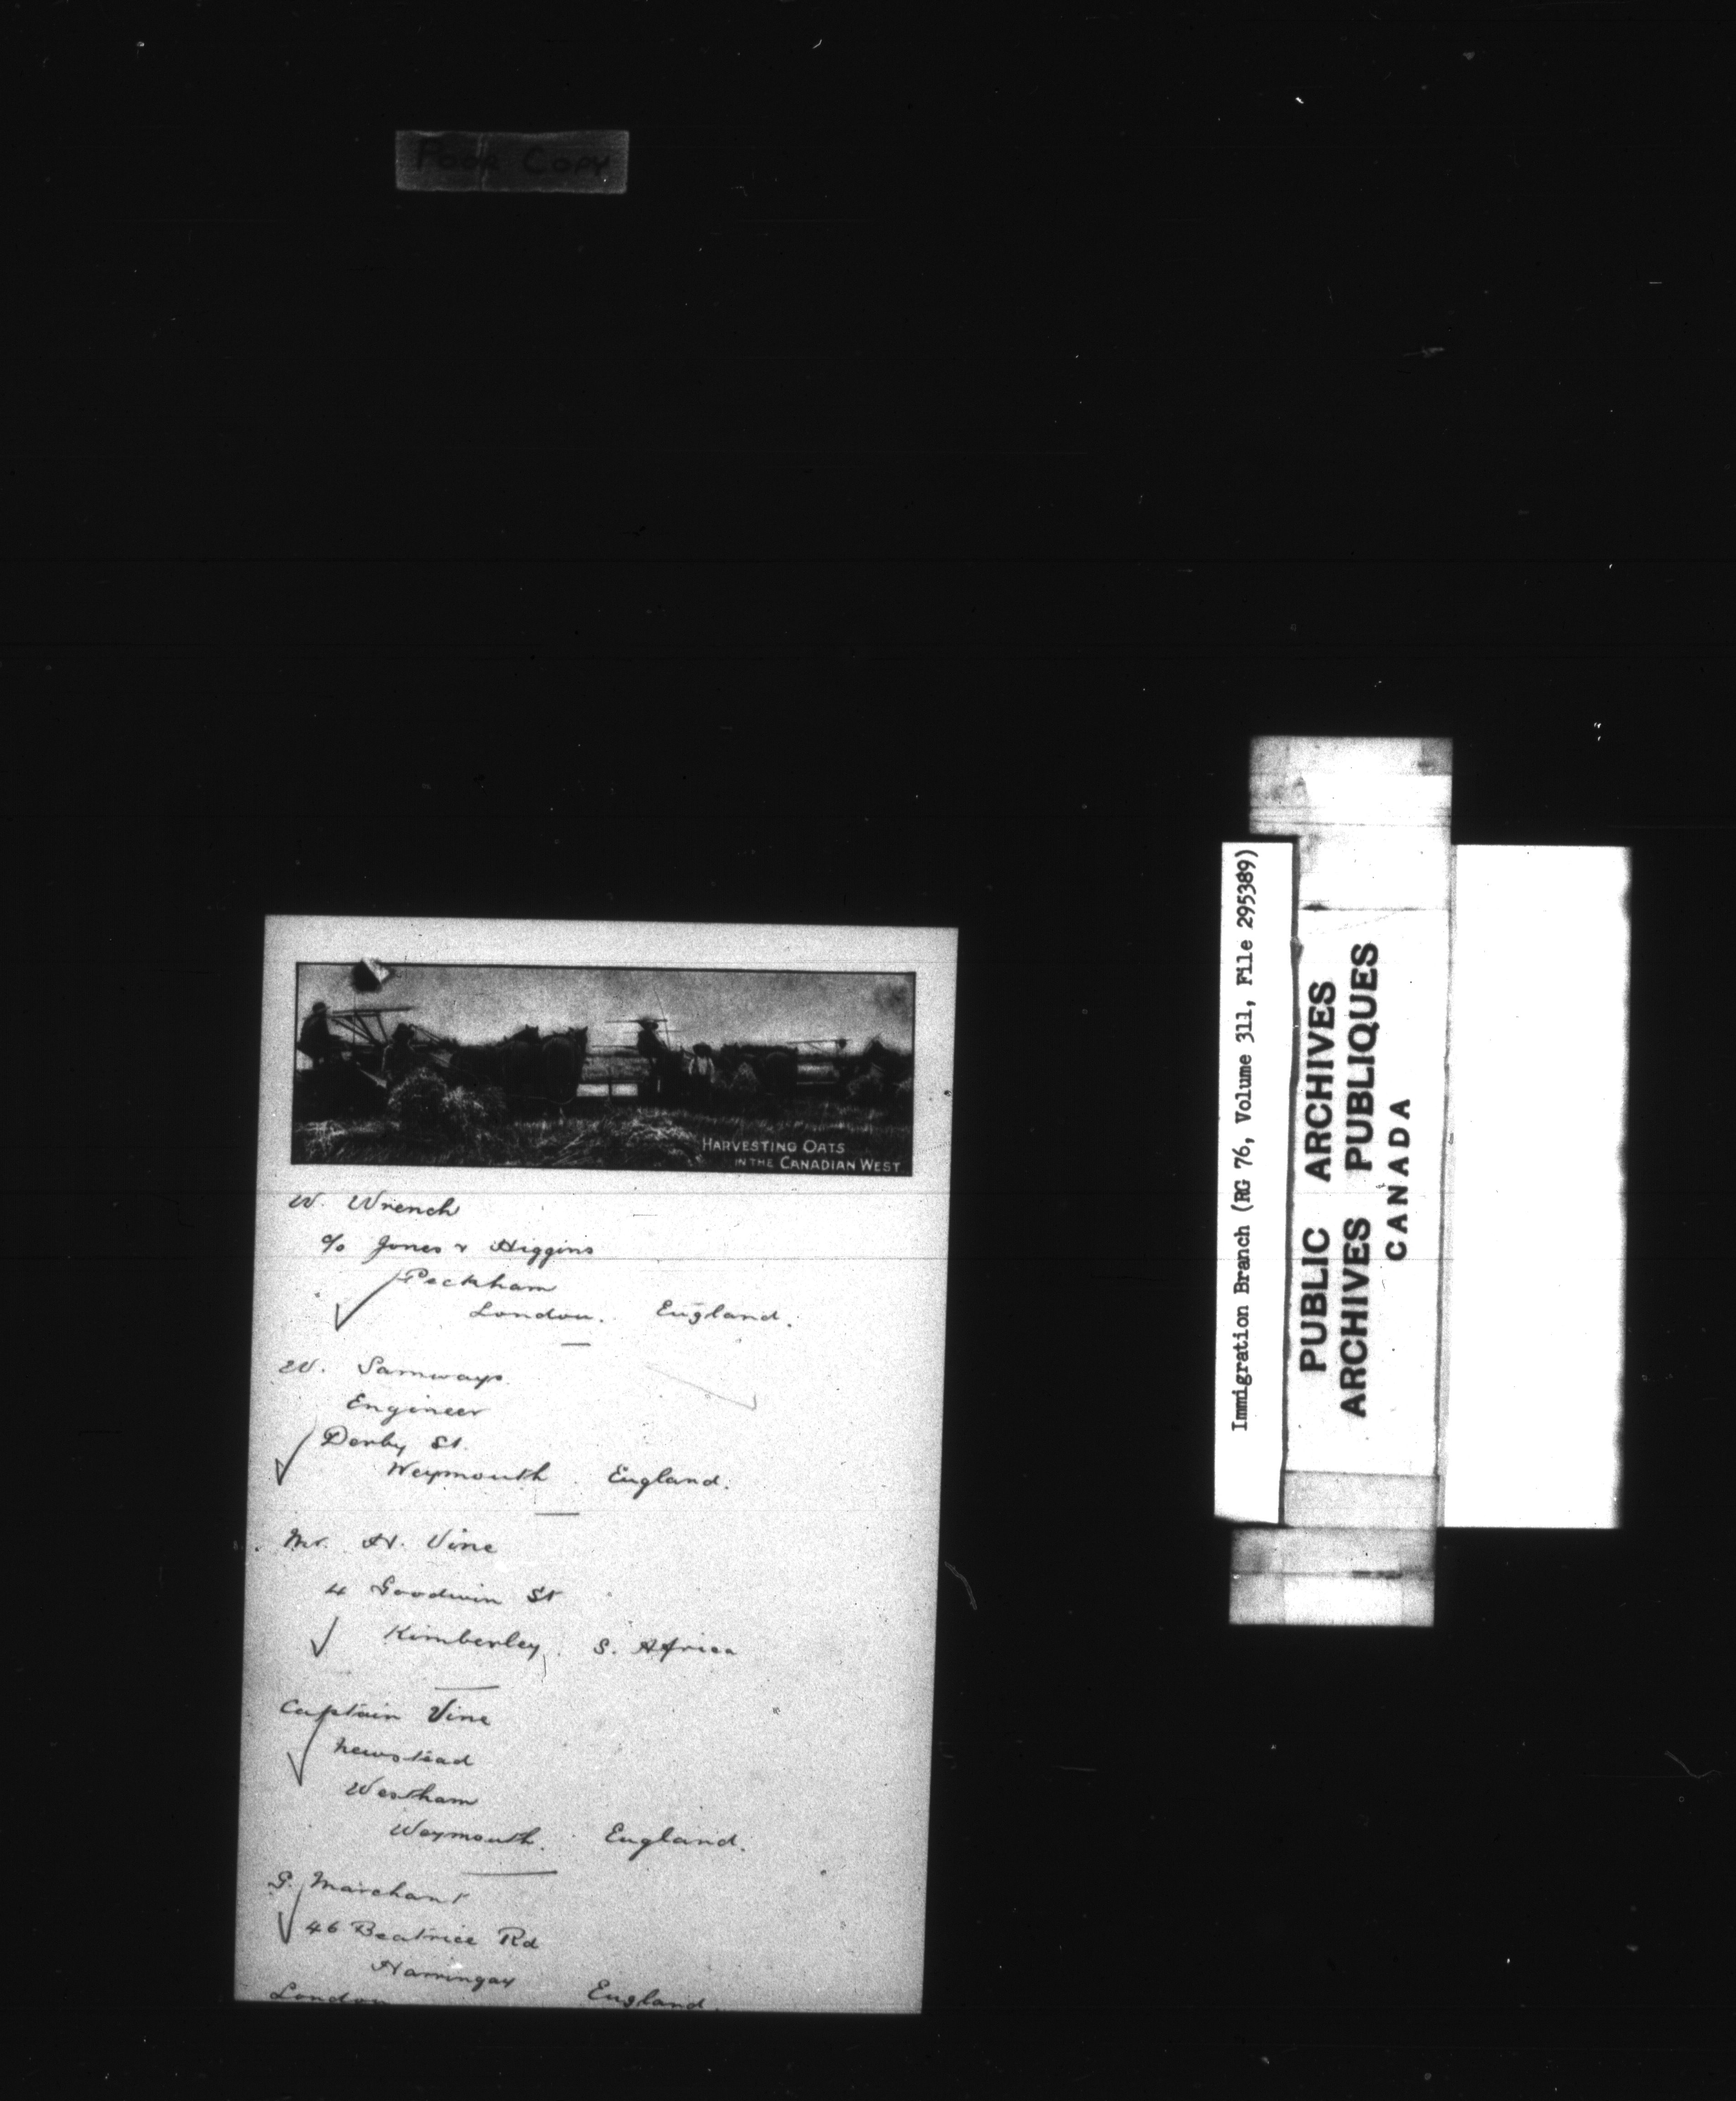 Poor Copy
HARVESTING OATS
IN THE CANADIAN WEST
W. Wrench
c/o Jones & Higgins
Peckham
London. England.
W. Samways
Engineer
Derby St.
Weymouth. England.
Mr. H. Vine
4 Goodwin St
Kimberley, S. Africa
Captain Vine
Newstead
Westham
Weymouth. England.
G. Marchant
46 Beatrice Rd
Harringay
London England.
Immigration Branch (RG 76, Volume 311, File 295389)
PUBLIC ARCHIVES
ARCHIVES PUBLIQUES
CANADA